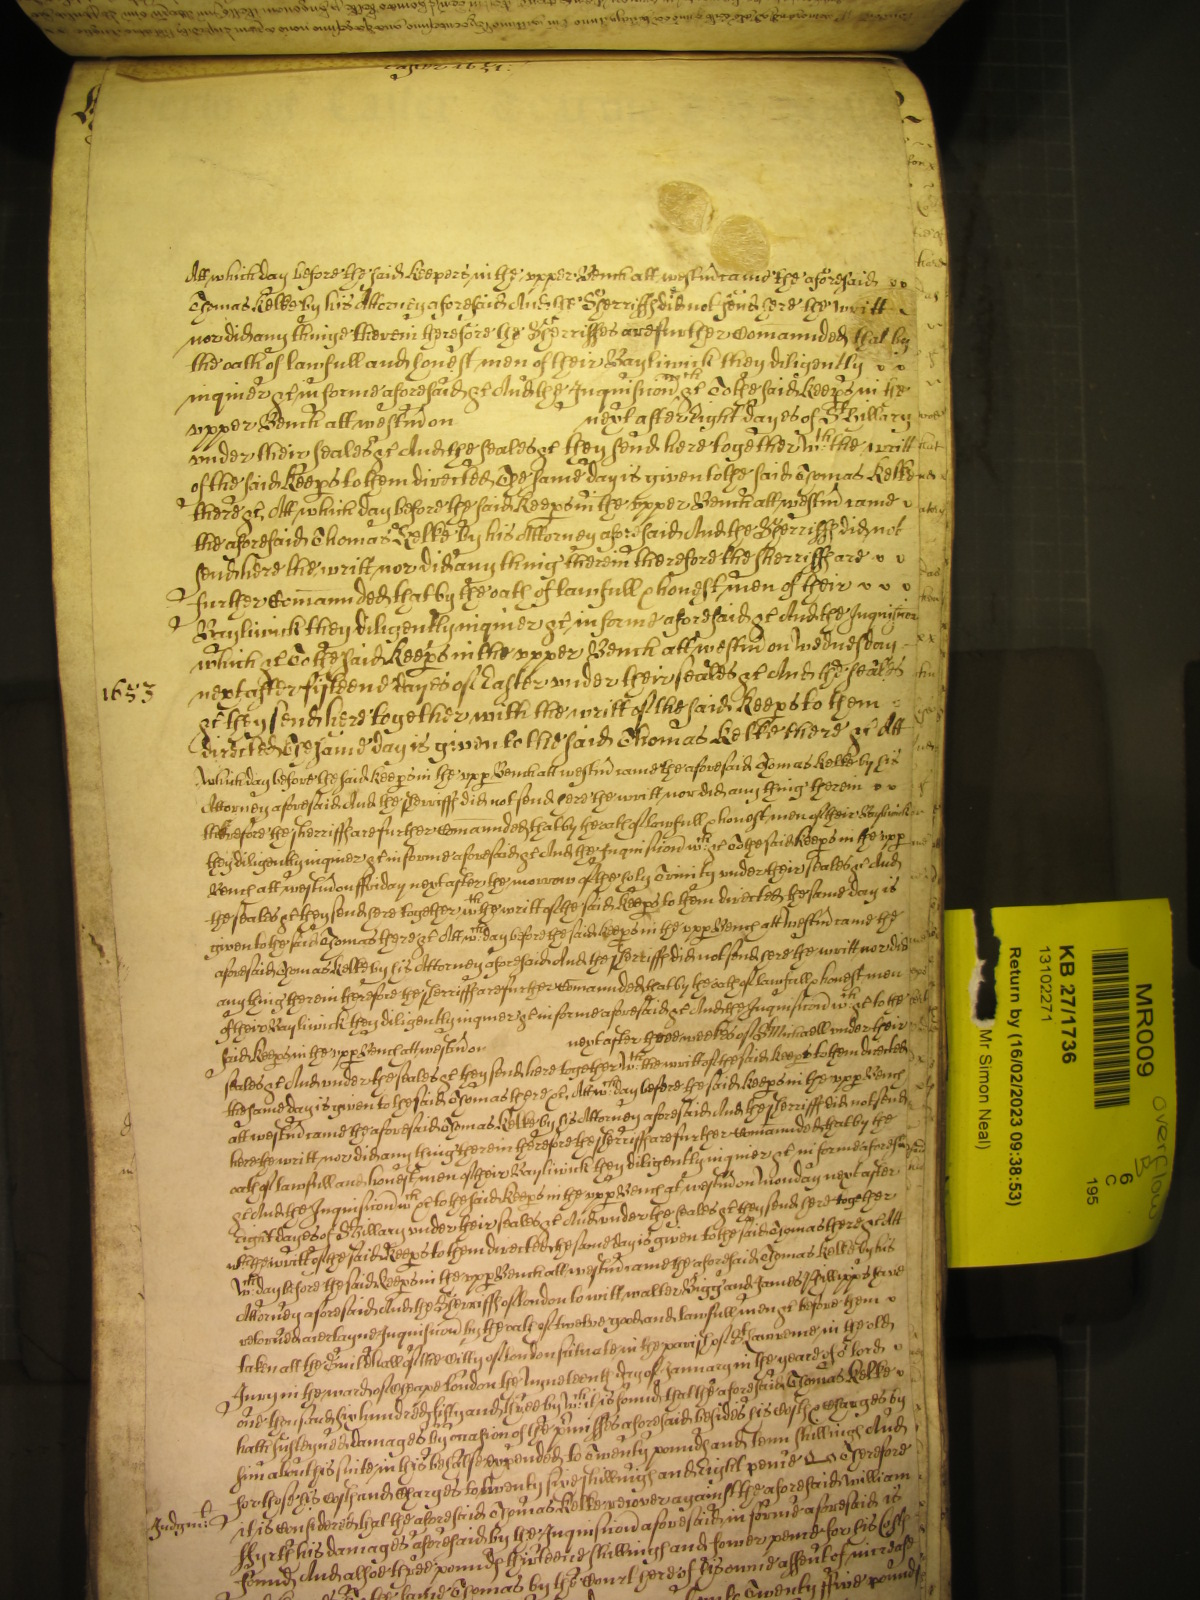 Easter 1651:
Att which day before the said Keepers in the upper Bench att Westm̃ came the aforesaid
Thomas Kelke by his Attorney aforesaid And the Sherriffs did not send here the writt
nor did any thinge therein therefore the Sherriffes are further Com̃anded that by
the oath of lawfull and honest men of their Bayliwick they diligently
inquier &c in forme aforesaid &c And the Inquisic̃on wch &c To the said Keeps in the
upper Bench att Westm̃ on next after Eight dayes of St Hillary
under their seales &c And the seales &c they send here together wth the writt
of the said Keeps to them directed The same day is given to the said Thomas Kelke
there &c Att which day before the said Keeps in the upper Bench att Westm̃ came
the aforesaid Thomas Kelke by his Attorney aforesaid And the Sherriffs did not
send here the writt nor did any thing therein therefore the Sherriffs are
further Com̃anded that by the oath of lawfull & honest men of their
Bayliwick they diligently inquier &c in forme aforesaid &c And the Inquisic̃on
which &c To the said Keeps in the upper Bench att Westm̃ on Wednesday
1653
next after fifteene dayes of Easter under their seales &c And the seales
&c they send here together with the writt of the said Keeps to them
directed The same day is given to the said Thomas Kelke there &c Att
which day before the said Keeps in the upp Bench att Westm̃ came the aforesaid Thomas Kelke by his
Attorney aforesaid And the Sherriffs did not send here the writt nor did any thing therein
therefore the Sherriffs are further Com̃anded that by the oath of lawfull & honest men of their Bayliwick
they diligently inquier &c in forme aforesaid &c And the Inquisic̃on wch &c To the said Keeps in the upp
Bench att Westm̃ on ffriday next after the morrow of the holy Trinity under their seales &c And
the seales &c they send here together wth the writt of the said Keeps to them directed the same day is
given to the said Thomas there &c Att wch day before the said Keeps in the upp Bench att Westm̃ came the
aforesaid Thomas Kelke by his Attorney aforesaid And the Sherriffs did not send here the writt nor did
any thing therein therefore the Sherriffs are further Com̃anded that by the oath of lawfull & honest men
of their Bayliwick they diligently inquier &c in forme aforesaid &c And the Inquisic̃on wch &c to the
said Keeps in the upp Bench att Westm̃ on next after three weekes of St Michaell under their
seales &c And under the seales &c they send here together wth the writt of the said Keeps to them directed
the same day is given to the said Thomas there &c Att wch day before the said Keeps in the upp Bench
att Westm̃ came the aforesaid Thomas Kelke by his Attorney aforesaid And the Sherriffs did not send
here the writt nor did any thing therein therefore the Sherriffs are further Com̃anded that by the
oath of lawfull and honest men of their Bayliwick they diligently inquier &c in forme aforesaid
&c And the Inquisic̃on wch &c to the said Keeps in the upp Bench at Westm̃ on Monday next after
Eight dayes of St Hillary under their seales &c And under the seales &c they send here together
wth the writt of the said Keeps to them directed the same day is given to the said Thomas there &c Att
wch day before the said Keeps in the upp Bench att Westm̃ came the aforesaid Thomas Kelke by his
Attorney aforesaid And the Sherriffs of London to witt Walter Bigg and James Phillipps have
retorned a certayne Inquisic̃on by the oath of twelve good and lawfull men &c before them
taken att the Guildhall of the Citty of London scituate in the parish of St Lawrence in the old
Jury in the ward of Cheape London the Nyneteenth day of January in the yeare of or lord
one thousand six hundred fifty and three by wch it is found that the aforesaid Thomas Kelke
hath susteyned damages by occasion of the p̃misses aforesaid besides his Costs & Charges by
him about his suite in this behalfe expended to Twenty pounds and tenn shillings And
for those his costs and Charges to twenty six shillings and Eight pence Therefore
Judgmt:
it is considered that the aforesaid Thomas Kelke recover against the aforesaid William
his damages aforesaid by the Inquisic̃on aforesaid in forme aforesaid
found And alsoe three pounds thirteene shillings and fower pence for his costs
to the same Thomas by the Court here of his owne assent of increase
Twenty ffive pounds
MR009
Overflow
B
6
C
195
KB 27/1736
13102271
Return by (16/02/2023 09:38:53)
Mr Simon Neal)